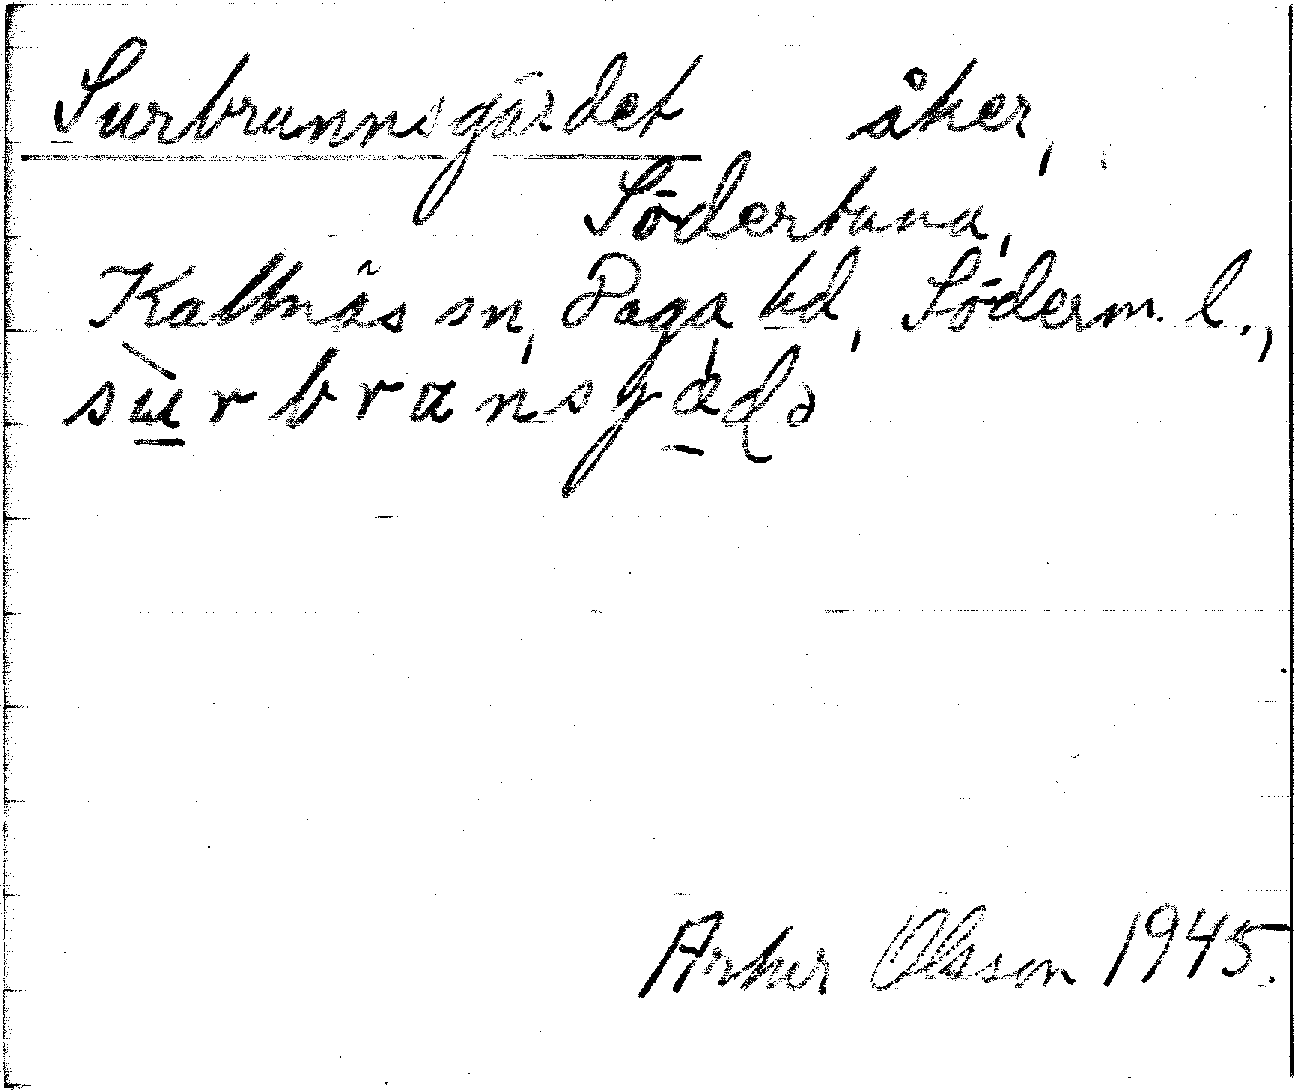 Surbrunnsgärdet åker,
Södertuna,
Kattnäs sn, Daga hd, Söderm. l.,
surbransgædə
Arthur Olsson 1945.